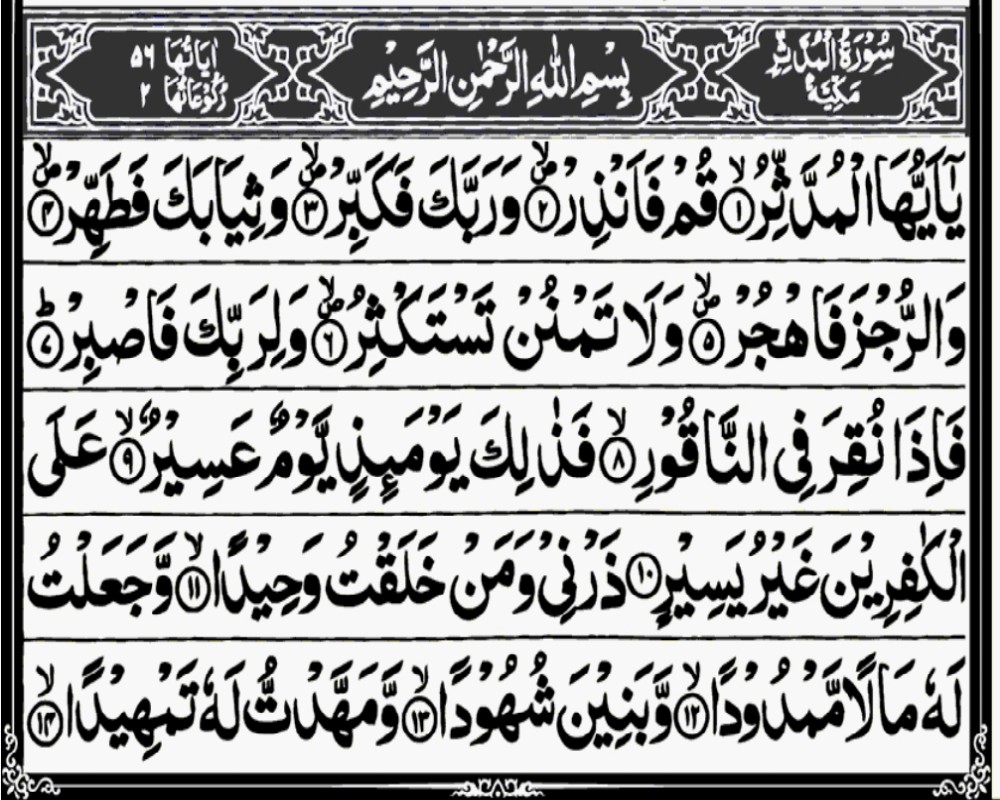 سُوْرَةُ الْمُدَّثِّرِ مَكِّيَّةٌ
بِسْمِ اللّٰهِ الرَّحْمٰنِ الرَّحِيْمِ
اٰيَاتُهَا ٥٦ رُكُوْعَاتُهَا ٢
يٰۤاَيُّهَا الْمُدَّثِّرُ ۙ﴿١﴾ قُمْ فَاَنْذِرْ ۪ۙ﴿٢﴾ وَرَبَّكَ فَكَبِّرْ ۪ۙ﴿٣﴾ وَثِيَابَكَ فَطَهِّرْ ۪ۙ﴿٤﴾
وَالرُّجْزَ فَاهْجُرْ ۪ۙ﴿٥﴾ وَلَا تَمْنُنْ تَسْتَكْثِرُ ۪ۙ﴿٦﴾ وَلِرَبِّكَ فَاصْبِرْ ؕ﴿٧﴾
فَاِذَا نُقِرَ فِى النَّاقُوْرِ ۙ﴿٨﴾ فَذٰلِكَ يَوْمَىِٕذٍ يَّوْمٌ عَسِيْرٌ ۙ﴿٩﴾ عَلَى
الْكٰفِرِيْنَ غَيْرُ يَسِيْرٍ ﴿١٠﴾ ذَرْنِىْ وَمَنْ خَلَقْتُ وَحِيْدًا ۙ﴿١١﴾ وَّجَعَلْتُ
لَهٗ مَالًا مَّمْدُوْدًا ۙ﴿١٢﴾ وَّبَنِيْنَ شُهُوْدًا ۙ﴿١٣﴾ وَّمَهَّدْتُّ لَهٗ تَمْهِيْدًا ۙ﴿١٤﴾